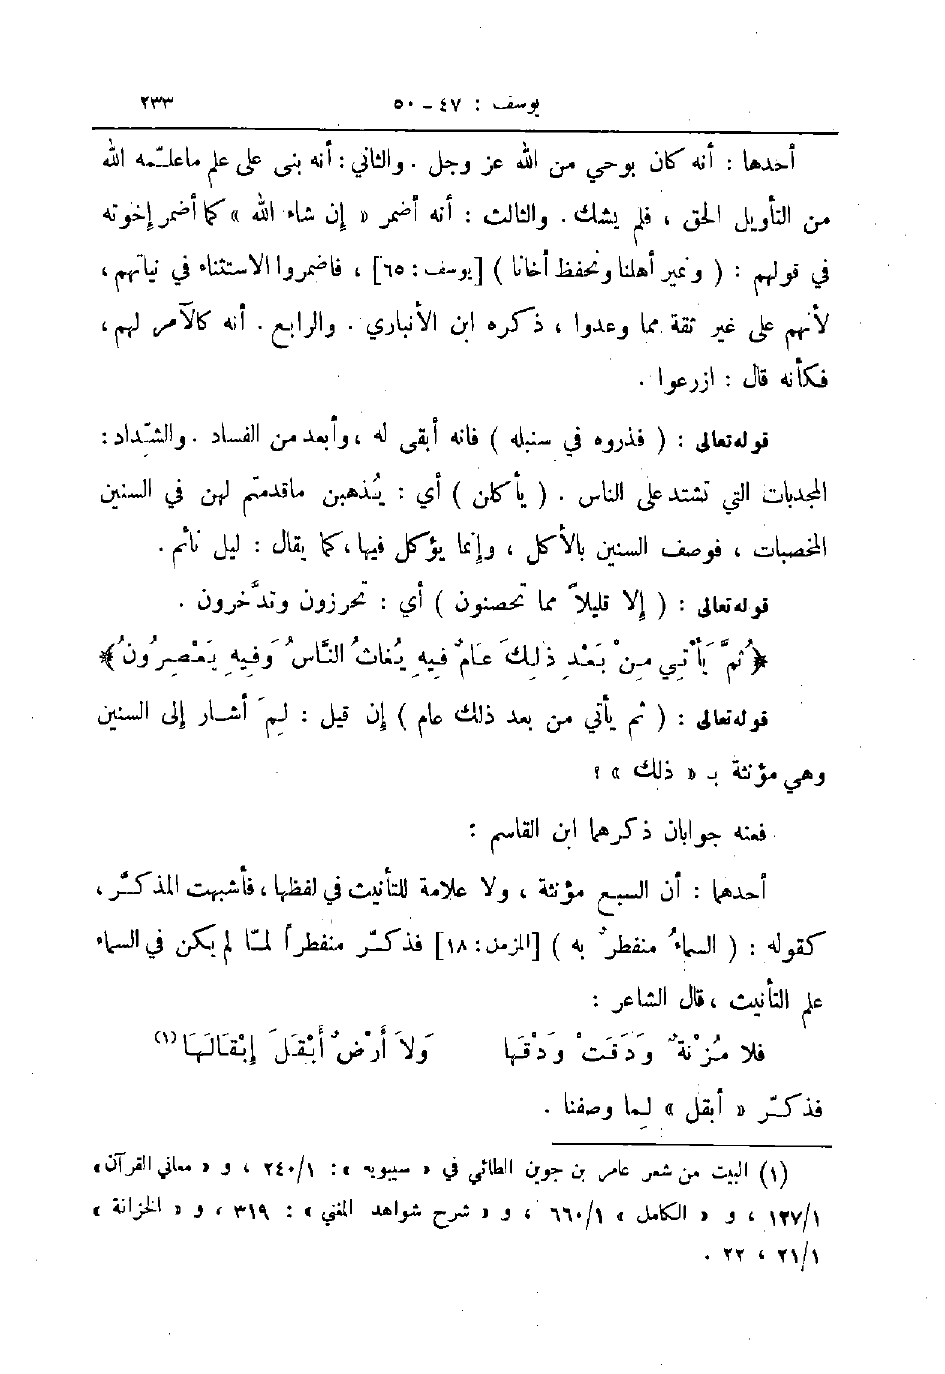 يوسف : ٤٧ – ٥٠ ٢٣٣
أحدها : أنه كان بوحي من الله عز وجل . والثاني : أنه بنى على علم ماعلّمه الله
من التأويل الحق ، فلم يشك . والثالث : أنه أضمر « إن شاء الله » كما أضمر إخوته
في قولهم : ( ونمير أهلنا ونحفظ أخانا ) [يوسف : ٦٥] ، فاضمروا الاستثناء في نياتهم ،
لأنهم على غير ثقة مما وعدوا ، ذكره ابن الأنباري . والرابع . أنه كالآمر لهم ،
فكأنه قال : ازرعوا .
قوله تعالى : ( فذروه في سنبله ) فانه أبقى له ، وأبعد من الفساد . والشِّداد :
المجدبات التي تشتد على الناس . ( يأكلن ) أي : يُذهبن ماقدمتم لهن في السنين
المخصبات ، فوصف السنين بالأكل ، وإنما يؤكل فيها ، كما يقال : ليل نائم .
قوله تعالى : ( إلا قليلاً مما تحصنون ) أي : تحرزون وتدَّخرون .
﴿ ثُمَّ يَأْتِي مِنْ بَعْدِ ذٰلِكَ عَامٌ فِيهِ يُغَاثُ النَّاسُ وَفِيهِ يَعْصِرُونَ ﴾
قوله تعالى : ( ثم يأتي من بعد ذلك عام ) إن قيل : لِمَ أشار إلى السنين
وهي مؤنثة بـ « ذلك » ؟
فعنه جوابان ذكرهما ابن القاسم :
أحدهما : أن السبع مؤنثة ، ولا علامة للتأنيث في لفظها ، فأشبهت المذكَّر ،
كقوله : ( السماءُ منفطرٌ به ) [المزمل : ١٨] فذكّر منفطراً لمّا لم يكن في السماء
علم التأنيث ، قال الشاعر :
فلا مُزْنةٌ وَدَقَتْ وَدْقَها وَلاَ أَرْضٌ أَبْقَلَ إِبْقَالَهَا (١)
فذكّر « أبقل » لِما وصفنا .
(١) البيت من شعر عامر بن جوين الطائي في « سيبويه » : ٢٤٠/١ ، و « معاني القرآن »
١٢٧/١ ، و « الكامل » ٦٦٠/١ ، و « شرح شواهد المغني » : ٣١٩ ، و « الخزانة »
٢١/١ ، ٢٢ .